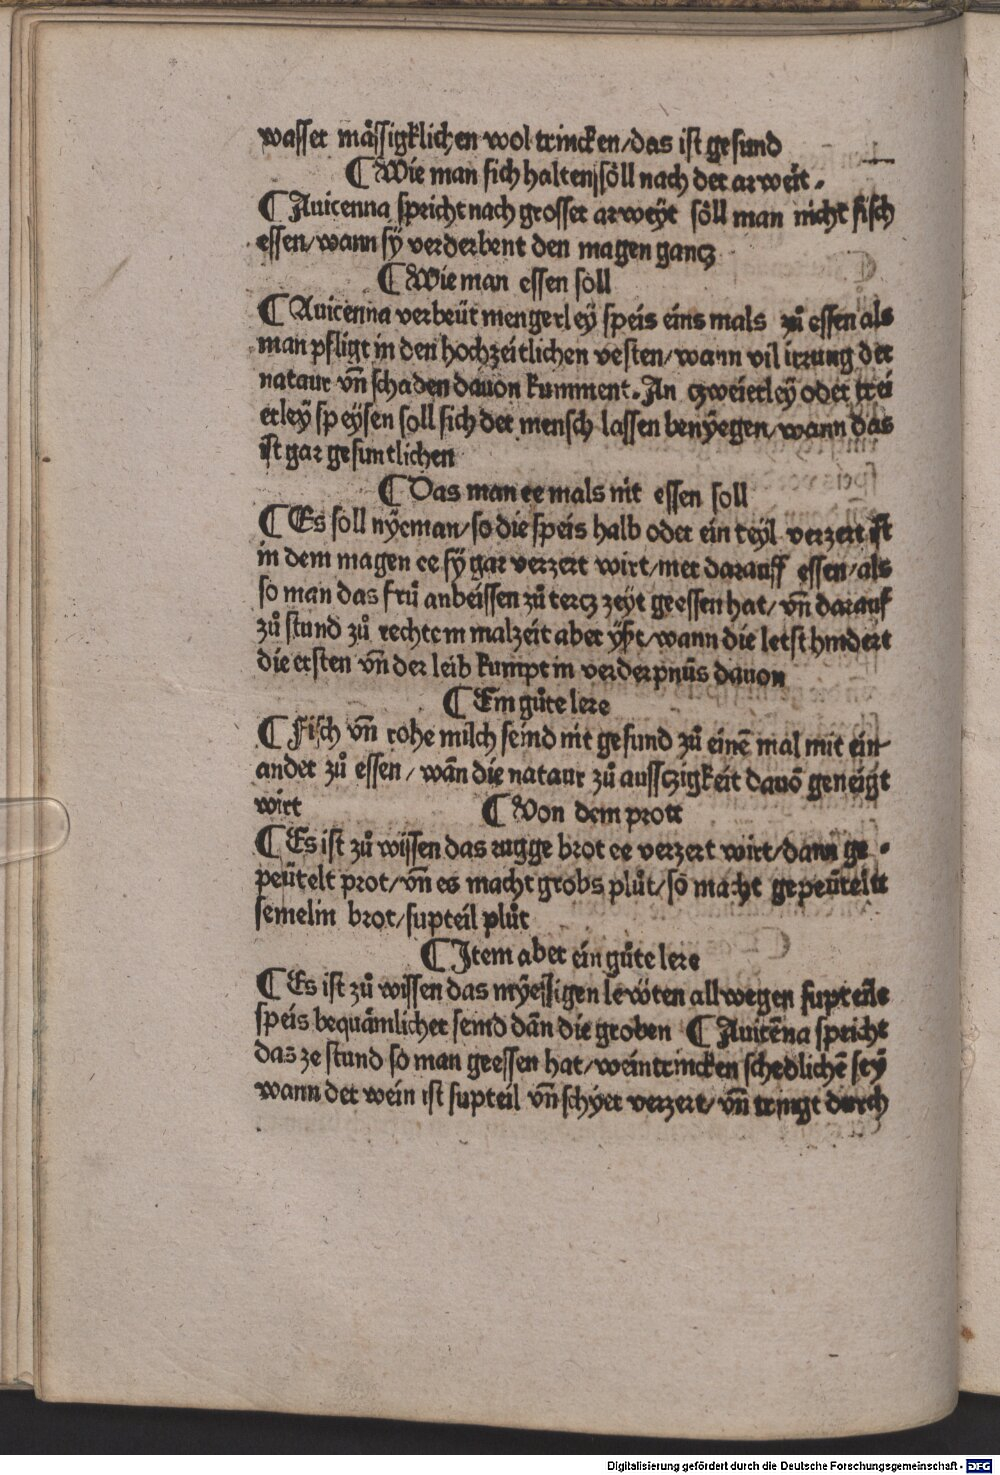 wasser mässigklichen wol trincken/das ist gesund
⸿ Wie man sich halten söll nach der arweit.
⸿ Auicenna spricht nach grosser arweyt söll man nicht fisch
essen/wann sÿ verderbent den magen gancz
⸿ Wie man essen soll
⸿ Auicenna verbeüt mengerleÿ speis eins mals zuͦ essen als
man pfligt in den hochzeitlichen vesten/wann vil irrung der
nataur vn̄ schaden dauon kumment. An czweierleÿ oder trei
erleÿ speÿsen soll sich der mensch lassen benÿegen/wann das
ist gar gesuntlichen
⸿ Das man ee mals nit essen soll
⸿ Es soll nÿeman/so die speis halb oder ein teÿl verzert ist
in dem magen ee sÿ gar verzert wirt/mer darauff essen/als
so man das fruͦ anbeissen zuͦ tercz zeÿt geessen hat/vn̄ darauf
zuͦ stund zuͦ rechtem malzeit aber ÿßt/wann die letst hindert
die ersten vn̄ der leib kumpt in verderpnüs dauon
⸿ Ein guͦte lere
⸿ Fisch vn̄ rohe milch seind nit gesund zuͦ einē mal mit ein-
ander zuͦ essen/wān die nataur zuͦ aussczigkeit dauō geneigt
wirt ⸿ Von dem prott
⸿ Es ist zuͦ wissen das rugge brot ee verzert wirt/dann ge-
peütelt prot/vn̄ es macht grobs pluͦt/so macht gepeüteltt
semelin brot/supteil pluͦt
⸿ Item aber ein guͦte lere
⸿ Es ist zuͦ wissen das mÿessigen lewten allwegen supteile
speis bequämlicher seind dān die groben ⸿ Auicēna spricht
das ze stund so man geessen hat/wein trincken schedlichē seÿ
wann der wein ist supteil vn̄ schÿer verzert/vn̄ tringt durch
Digitalisierung gefördert durch die Deutsche Forschungsgemeinschaft - DFG